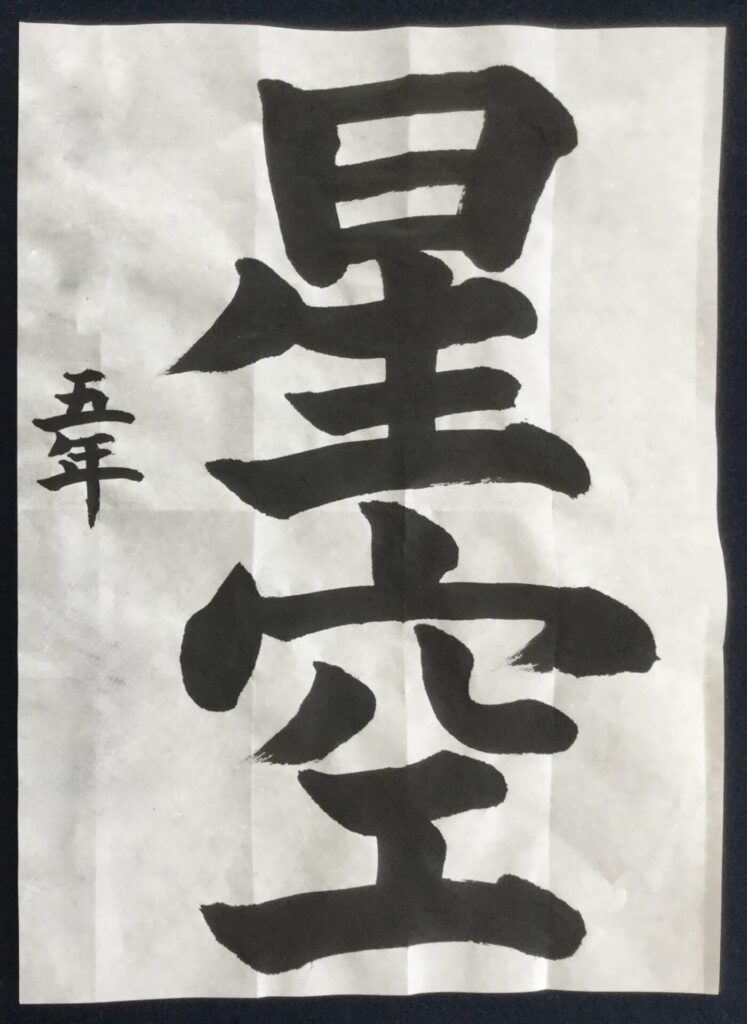 星空
五年